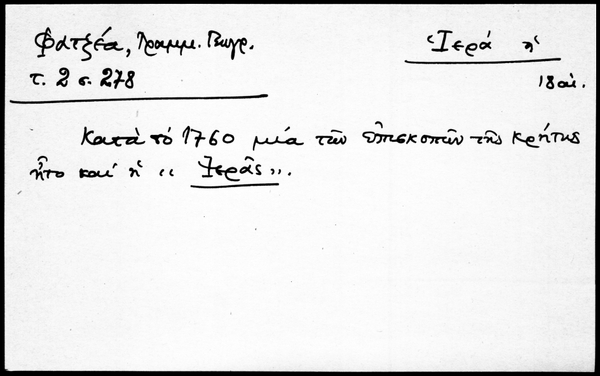 Φατζέα, Γραμμ. Γεωγρ.
τ. 2 σ. 278
Ἱερά ἡ
18 αἰ.
Κατὰ τό 1760 μία τῶν ἐπισκοπῶν τῆς Κρήτης
ἦτο καί ἡ " Ἱερᾶς ".